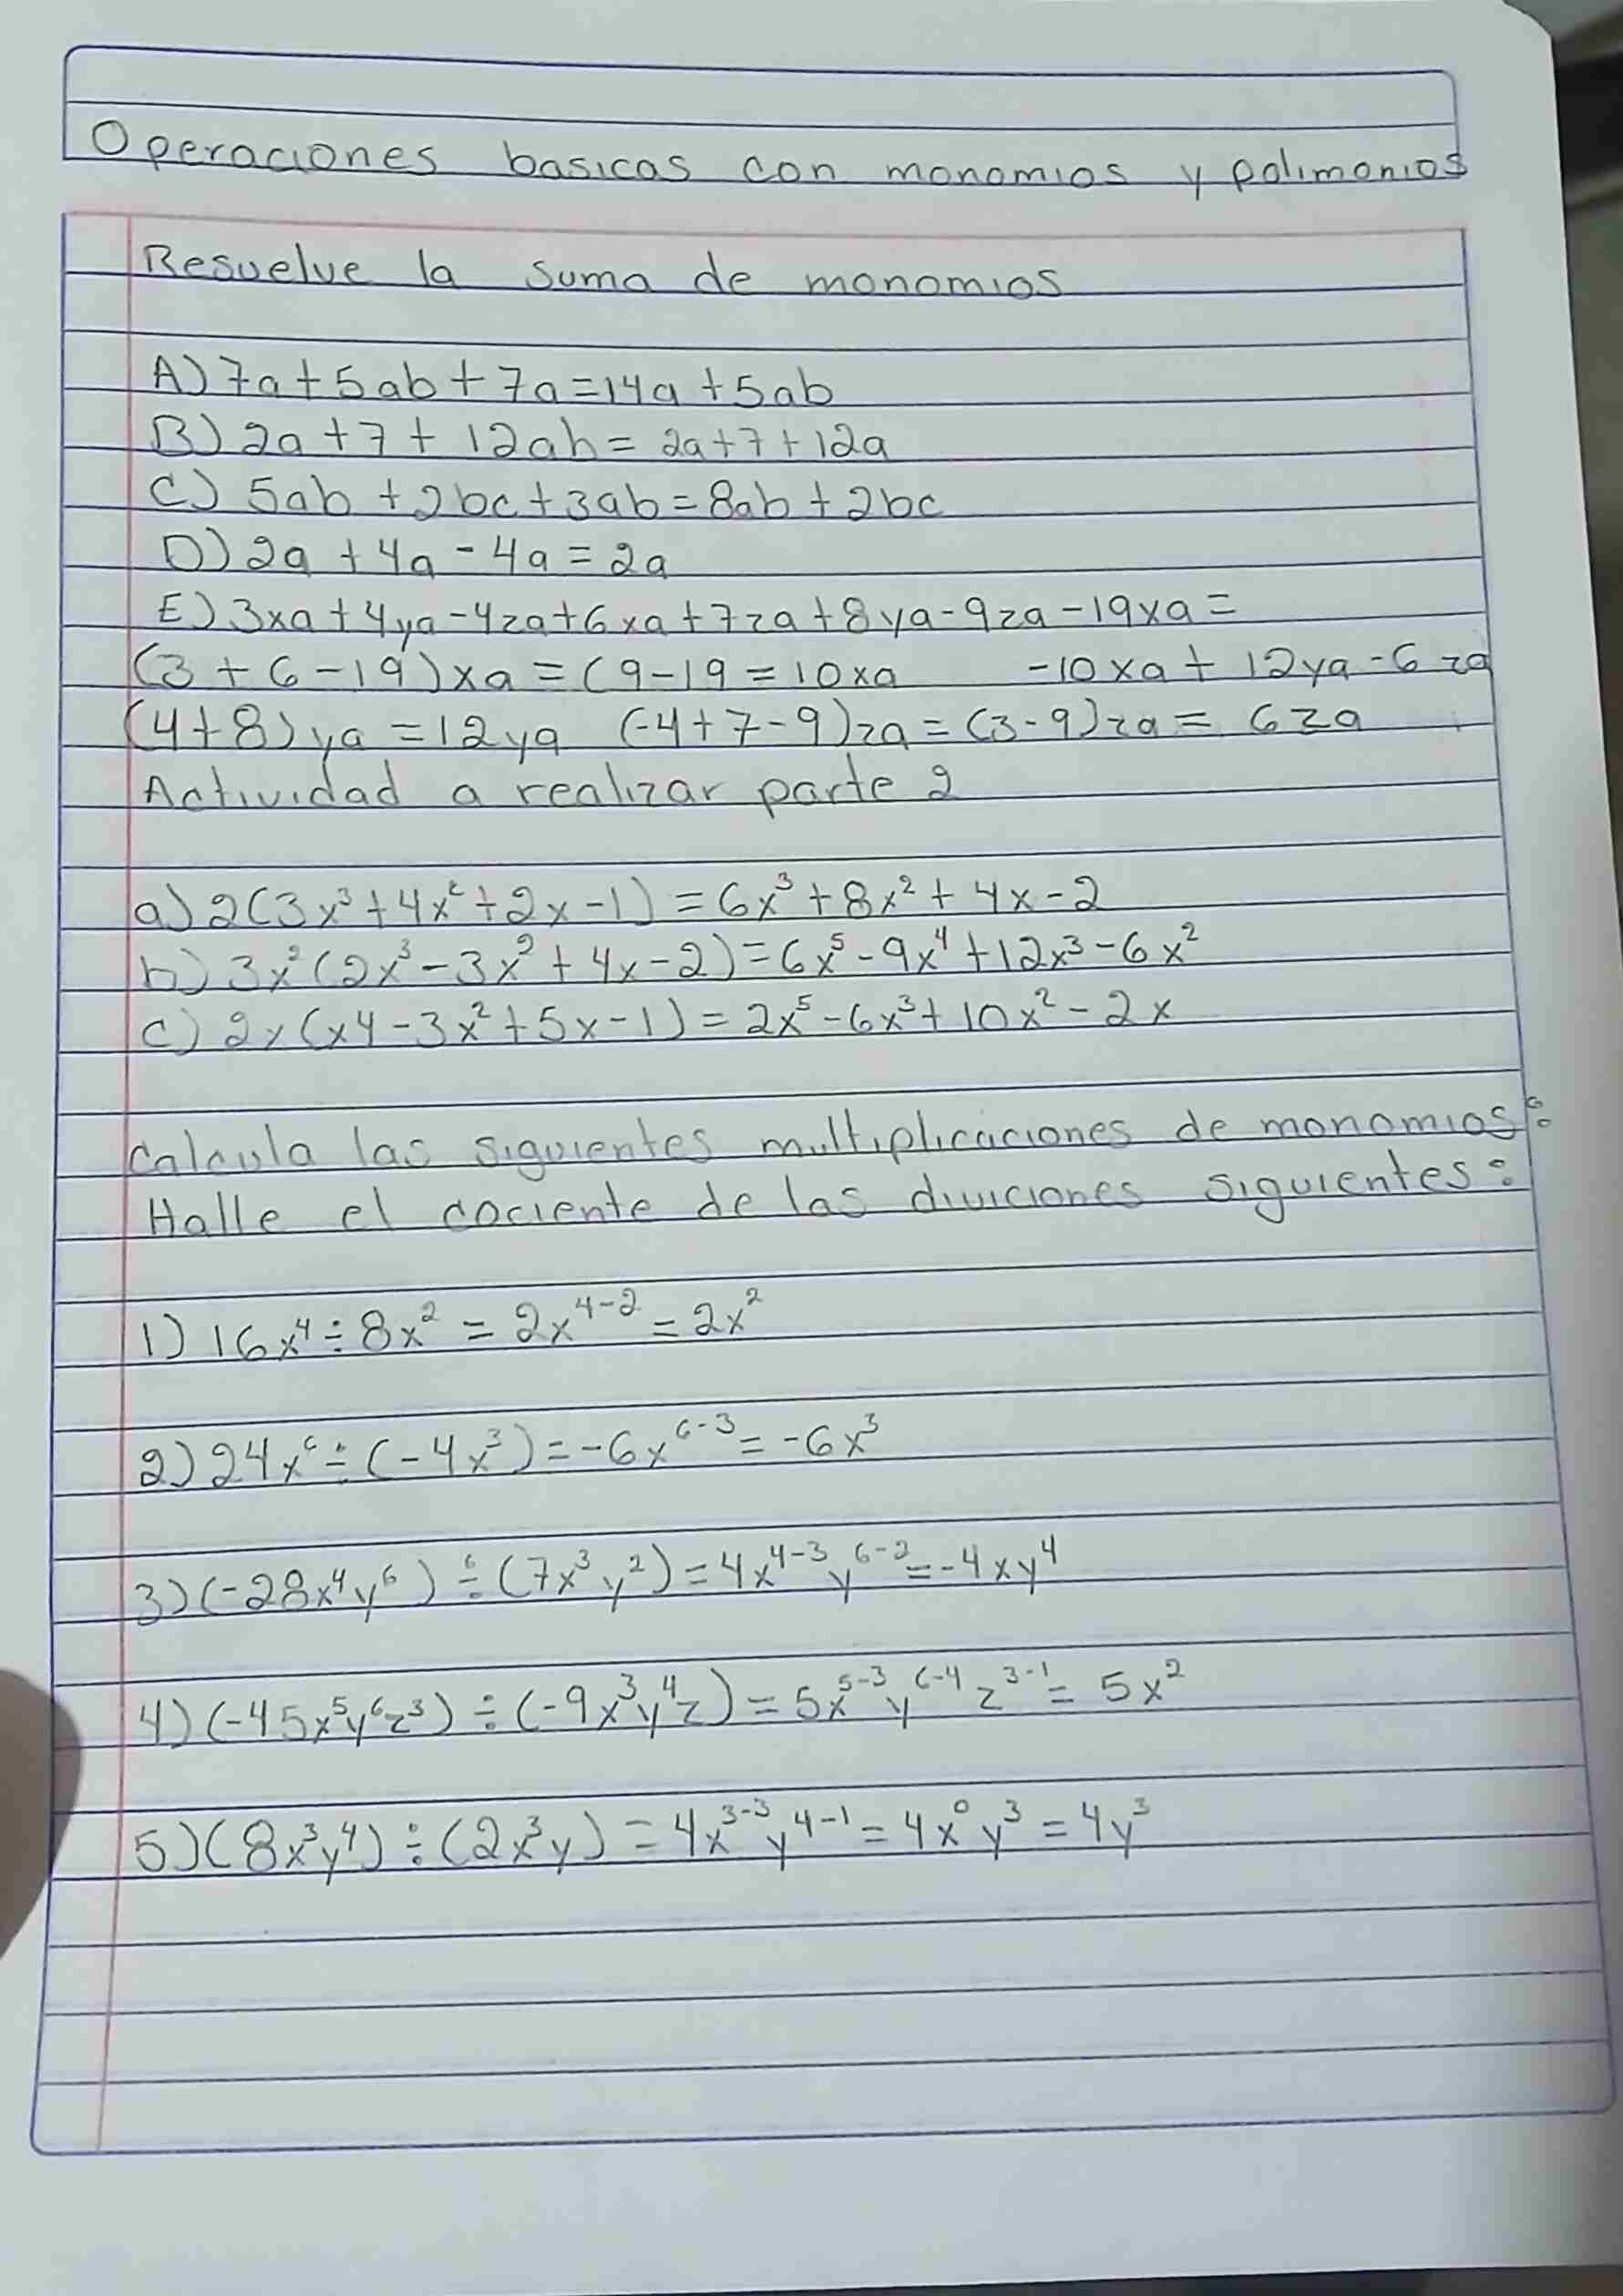 Operaciones basicas con monomios y polimonios
Resuelve la suma de monomios
A) 7a+5ab+7a=14a+5ab
B) 2a+7+12ab=2a+7+12a
C) 5ab+2bc+3ab=8ab+2bc
D) 2a+4a-4a=2a
E) 3xa+4ya-4za+6xa+7za+8ya-9za-19xa=
(3+6-19)xa=(9-19=10xa -10xa+12ya-6za
(4+8)ya=12ya (-4+7-9)za=(3-9)za=6za
Actividad a realizar parte 2
a) 2(3x³+4x²+2x-1)=6x³+8x²+4x-2
b) 3x²(2x³-3x²+4x-2)=6x⁵-9x⁴+12x³-6x²
c) 2x(x4-3x²+5x-1)=2x⁵-6x³+10x²-2x
Calcula las siguientes multiplicaciones de monomios:
Halle el cociente de las diviciones siguientes:
1) 16x⁴÷8x²=2x⁴⁻²=2x²
2) 24x⁶÷(-4x³)=-6x⁶⁻³=-6x³
3) (-28x⁴y⁶)÷(7x³y²)=4x⁴⁻³y⁶⁻²=-4xy⁴
4) (-45x⁵y⁶z³)÷(-9x³y⁴z)=5x⁵⁻³y⁶⁻⁴z³⁻¹=5x²
5) (8x³y⁴)÷(2x³y)=4x³⁻³y⁴⁻¹=4x⁰y³=4y³